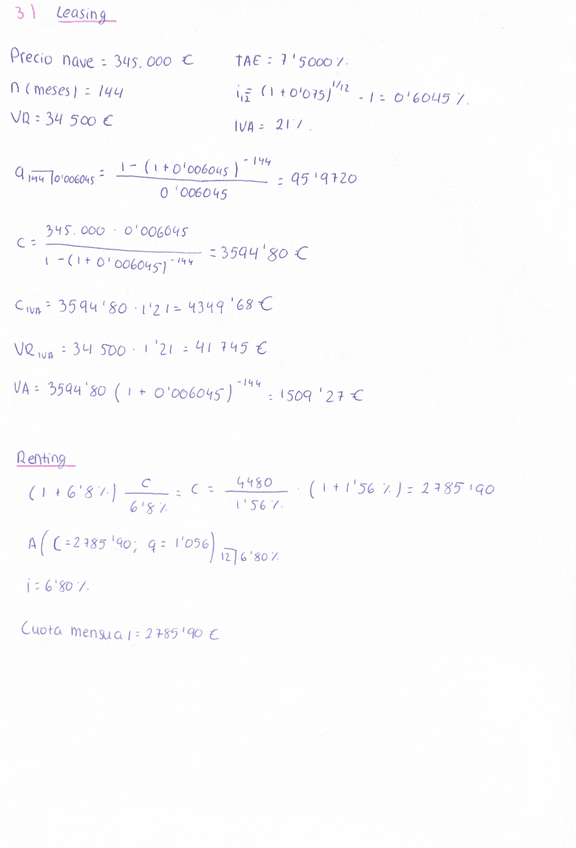 3) Leasing
Precio nave = 345.000 € TAE: 7'5000%
n (meses) = 144 i12 = (1 + 0'075)^1/12 - 1 = 0'6045 %.
VR = 34 500 € IVA = 21%.
a144¬0'006045 = 1 - (1 + 0'006045)^-144 / 0'006045 = 95'9720
C = 345.000 · 0'006045 / 1 - (1 + 0'006045)^-144 = 3594'80 €
CIVA = 3594'80 · 1'21 = 4349'68 €
VRIVA = 34 500 · 1'21 = 41 745 €
VA = 3594'80 (1 + 0'006045)^-144 = 1509'27 €
Renting
(1 + 6'8%) C / 6'8% = C = 4480 / 1'56% · (1 + 1'56%) = 2785'90
A (C = 2785'90; q = 1'056) 12¬6'80%
i = 6'80%
Cuota mensual = 2785'90 €